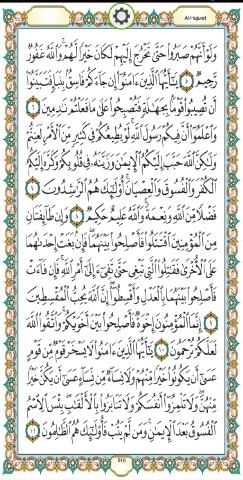 Al-Hujurat
وَلَوْ أَنَّهُمْ صَبَرُوا۟ حَتَّىٰ تَخْرُجَ إِلَيْهِمْ لَكَانَ خَيْرًا لَّهُمْ وَٱللَّهُ غَفُورٌ
رَّحِيمٌ ٥ يَٰٓأَيُّهَا ٱلَّذِينَ ءَامَنُوٓا۟ إِن جَآءَكُمْ فَاسِقٌۢ بِنَبَإٍ فَتَبَيَّنُوٓا۟
أَن تُصِيبُوا۟ قَوْمًۢا بِجَهَٰلَةٍ فَتُصْبِحُوا۟ عَلَىٰ مَا فَعَلْتُمْ نَٰدِمِينَ ٦
وَٱعْلَمُوٓا۟ أَنَّ فِيكُمْ رَسُولَ ٱللَّهِ لَوْ يُطِيعُكُمْ فِى كَثِيرٍ مِّنَ ٱلْأَمْرِ لَعَنِتُّمْ
وَلَٰكِنَّ ٱللَّهَ حَبَّبَ إِلَيْكُمُ ٱلْإِيمَٰنَ وَزَيَّنَهُۥ فِى قُلُوبِكُمْ وَكَرَّهَ إِلَيْكُمُ
ٱلْكُفْرَ وَٱلْفُسُوقَ وَٱلْعِصْيَانَ أُو۟لَٰٓئِكَ هُمُ ٱلرَّٰشِدُونَ ٧
فَضْلًا مِّنَ ٱللَّهِ وَنِعْمَةً وَٱللَّهُ عَلِيمٌ حَكِيمٌ ٨ وَإِن طَآئِفَتَانِ
مِنَ ٱلْمُؤْمِنِينَ ٱقْتَتَلُوا۟ فَأَصْلِحُوا۟ بَيْنَهُمَا فَإِنۢ بَغَتْ إِحْدَىٰهُمَا
عَلَى ٱلْأُخْرَىٰ فَقَٰتِلُوا۟ ٱلَّتِى تَبْغِى حَتَّىٰ تَفِىٓءَ إِلَىٰٓ أَمْرِ ٱللَّهِ فَإِن فَآءَتْ
فَأَصْلِحُوا۟ بَيْنَهُمَا بِٱلْعَدْلِ وَأَقْسِطُوٓا۟ إِنَّ ٱللَّهَ يُحِبُّ ٱلْمُقْسِطِينَ
٩ إِنَّمَا ٱلْمُؤْمِنُونَ إِخْوَةٌ فَأَصْلِحُوا۟ بَيْنَ أَخَوَيْكُمْ وَٱتَّقُوا۟ ٱللَّهَ
لَعَلَّكُمْ تُرْحَمُونَ ١٠ يَٰٓأَيُّهَا ٱلَّذِينَ ءَامَنُوا۟ لَا يَسْخَرْ قَوْمٌ مِّن قَوْمٍ
عَسَىٰٓ أَن يَكُونُوا۟ خَيْرًا مِّنْهُمْ وَلَا نِسَآءٌ مِّن نِّسَآءٍ عَسَىٰٓ أَن يَكُنَّ خَيْرًا
مِّنْهُنَّ وَلَا تَلْمِزُوٓا۟ أَنفُسَكُمْ وَلَا تَنَابَزُوا۟ بِٱلْأَلْقَٰبِ بِئْسَ ٱلِٱسْمُ
ٱلْفُسُوقُ بَعْدَ ٱلْإِيمَٰنِ وَمَن لَّمْ يَتُبْ فَأُو۟لَٰٓئِكَ هُمُ ٱلظَّٰلِمُونَ ١١
516